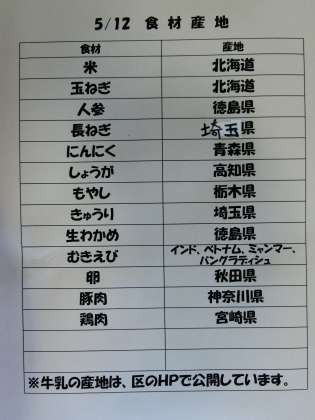 5/12 食材産地
食材 産地
米 北海道
玉ねぎ 北海道
人参 徳島県
長ねぎ 埼玉県
にんにく 青森県
しょうが 高知県
もやし 栃木県
きゅうり 埼玉県
生わかめ 徳島県
むきえび インド、ベトナム、ミャンマー、
バングラディシュ
卵 秋田県
豚肉 神奈川県
鶏肉 宮崎県
※牛乳の産地は、区のHPで公開しています。